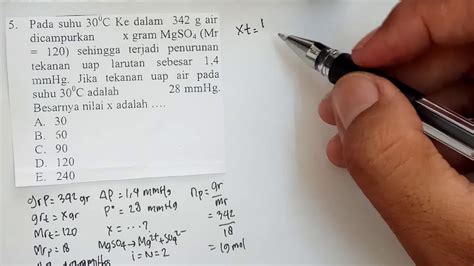 5. Pada suhu 30⁰C Ke dalam 342 g air
dicampurkan x gram MgSO₄ (Mr
= 120) sehingga terjadi penurunan
tekanan uap larutan sebesar 1,4
mmHg. Jika tekanan uap air pada
suhu 30⁰C adalah 28 mmHg.
Besarnya nilai x adalah ....
A. 30
B. 60
C. 90
D. 120
E. 240
xt = 1
grp = 342 gr
grt = x gr
Mrt = 120
Mrp = 18
ΔP = 1,4 mmHg
P° = 28 mmHg
x = ...?
MgSO₄ → Mg²⁺ + SO₄²⁻
i = N = 2
np = gr/mr
= 342/18
= 19 mol